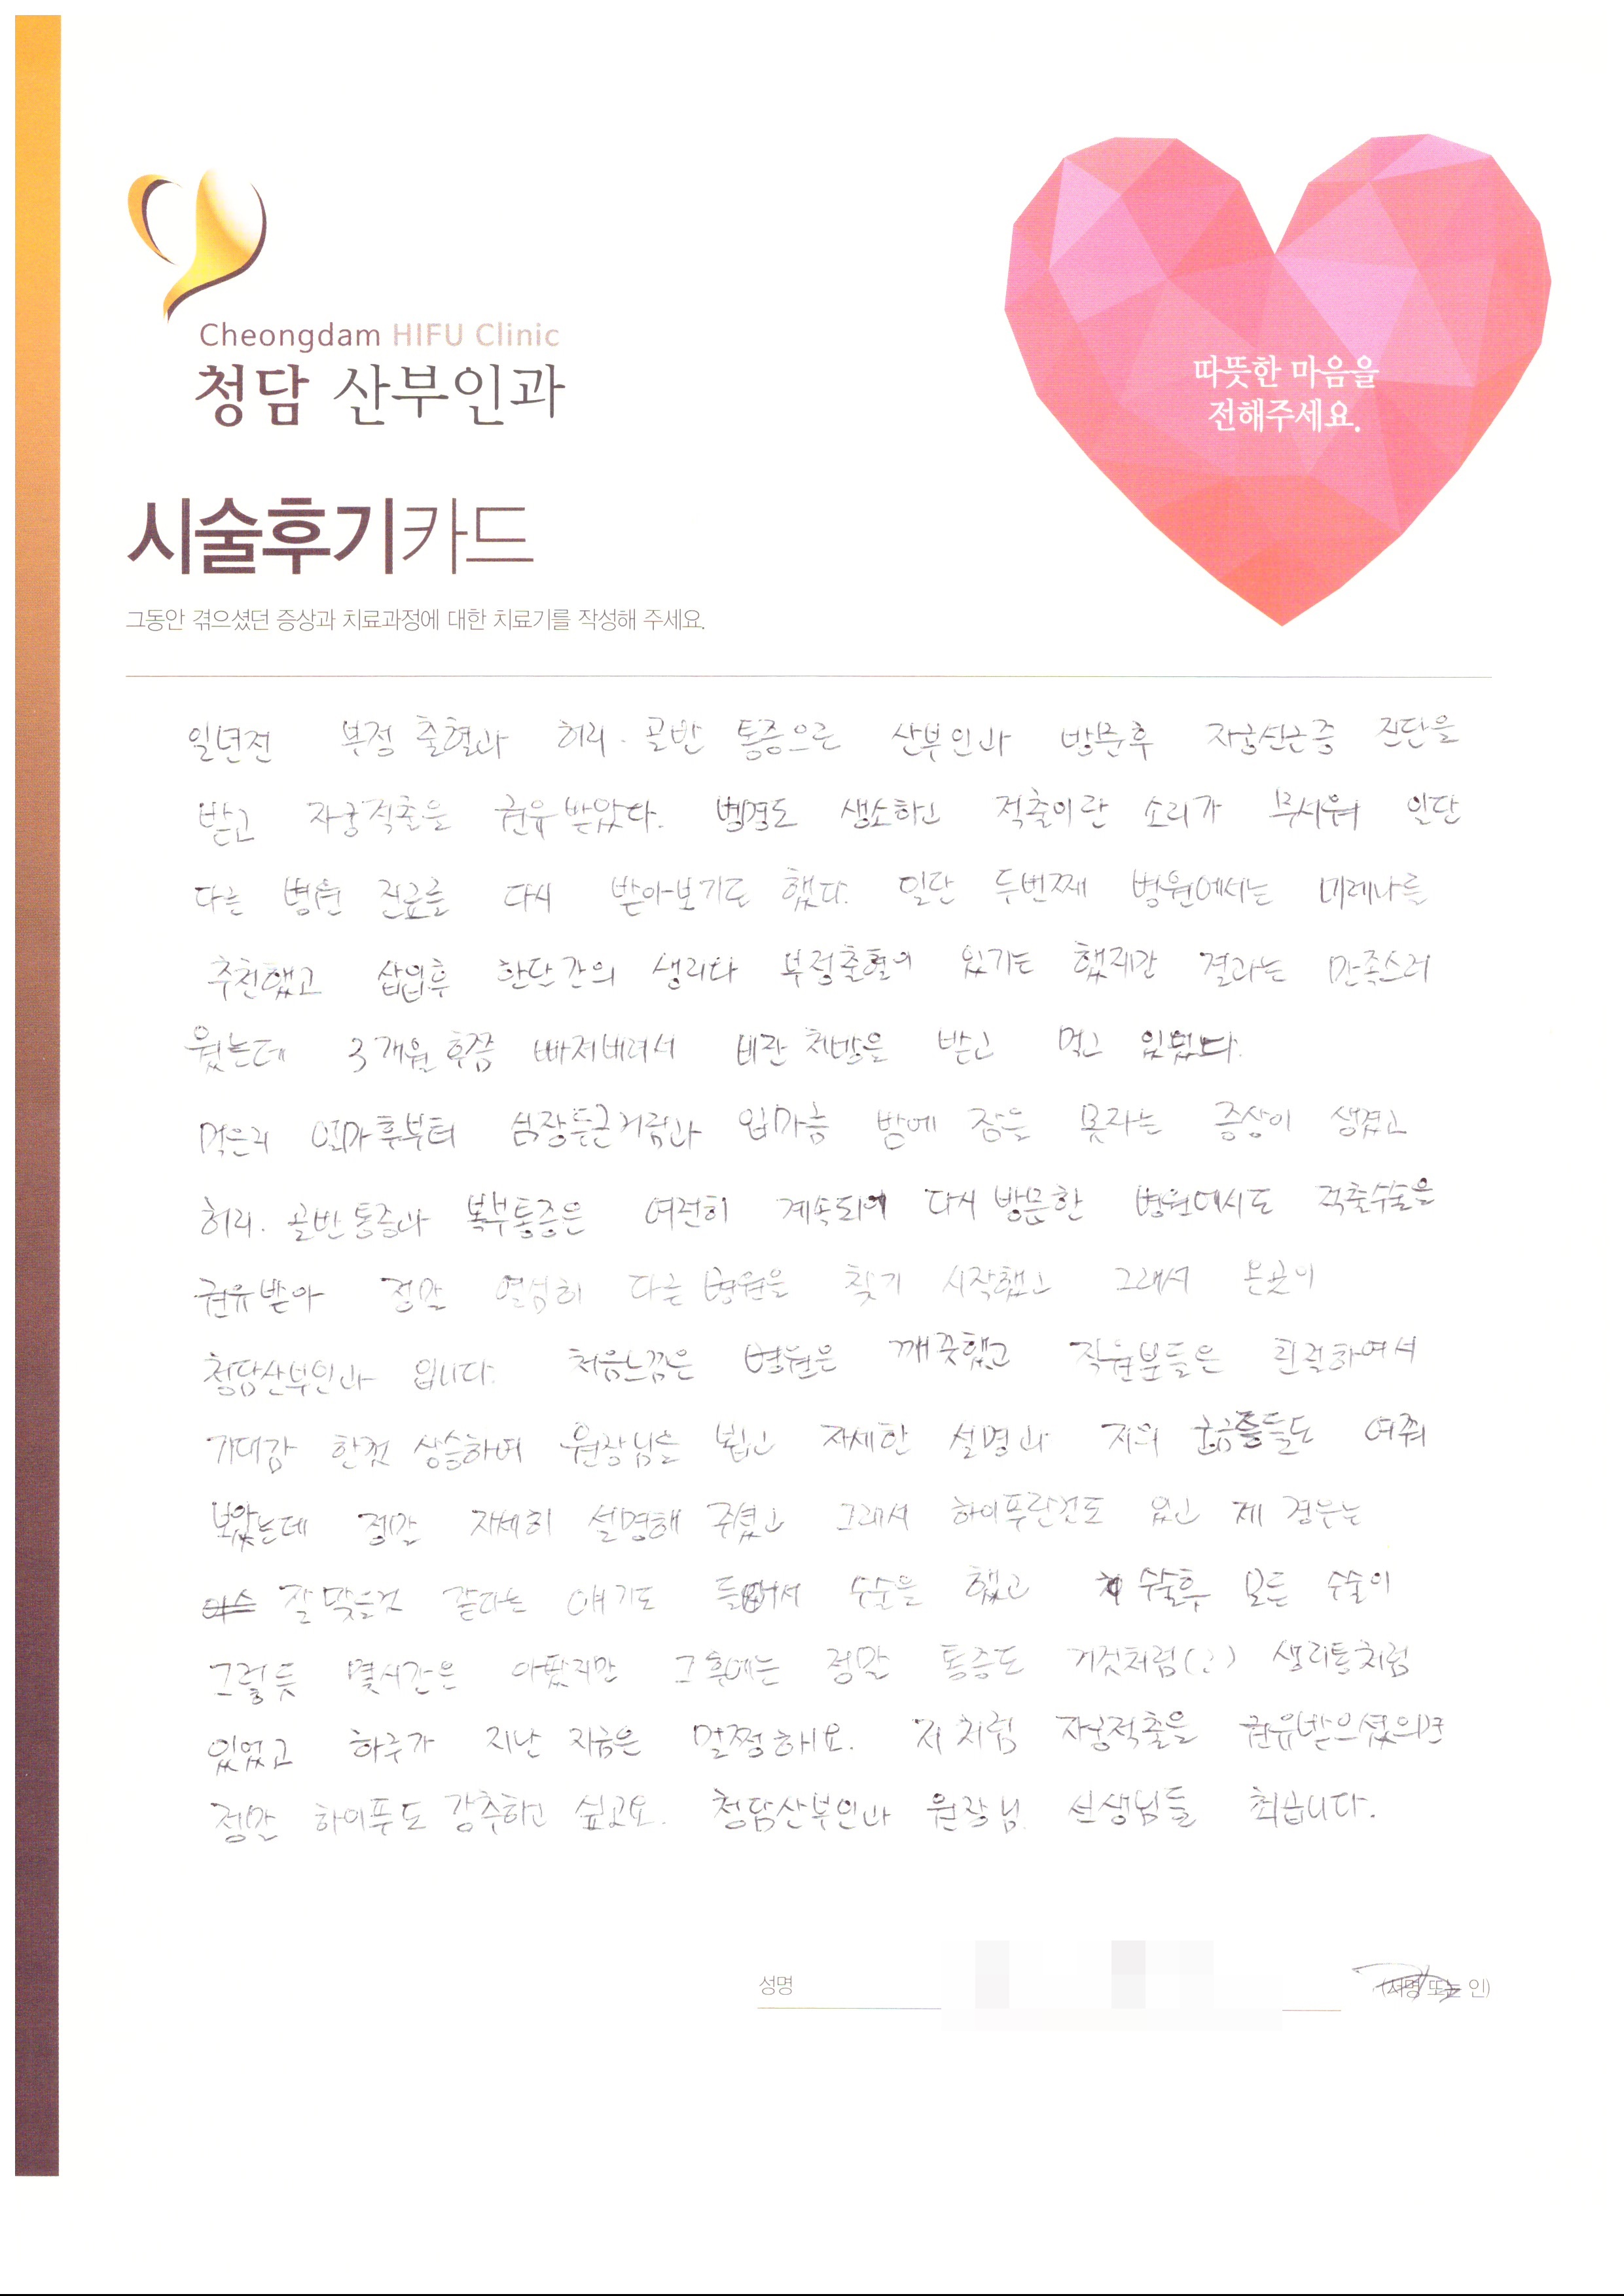 Cheongdam HIFU Clinic
청담 산부인과
따뜻한 마음을
전해주세요.
시술후기카드
그동안 겪으셨던 증상과 치료과정에 대한 치료기를 작성해 주세요.
일년전 부정 출혈과 허리. 골반 통증으로 산부인과 방문후 자궁선근증 진단을
받고 자궁적출을 권유받았다. 병명도 생소하고 적출이란 소리가 무서워 일단
다른 병원 진료를 다시 받아보기도 했다. 일단 두번째 병원에서는 미레나를
추천했고 삽입후 한단간의 생리다 부정출혈이 있기는 했지만 결과는 만족스러
웠는데 3개월 후쯤 빠져버려서 비잔 처방을 받고 먹고 있었다.
먹은지 얼마후부터 심장두근거림과 입마름 밤에 잠을 못자는 증상이 생겼고
허리. 골반통증과 복부통증은 여전히 계속되어 다시 방문한 병원에서도 적출수술을
권유받아 정말 열심히 다른 병원을 찾기 시작했고 그래서 온곳이
청담산부인과 입니다. 처음느낌은 병원은 깨끗했고 직원분들은 친절하여서
기대감 한껏 상승하여 원장님을 뵙고 자세한 설명과 저의 궁금증들도 여쭤
보았는데 정말 자세히 설명해 주셨고 그래서 하이푸란것도 있고 제 경우는
잘 맞을것 같다는 얘기도 들어서 수술을 했고 수술후 모든 수술이
그렇듯 몇시간은 아팠지만 그 후에는 정말 통증도 거짓처럼(?) 생리통처럼
있었고 하루가 지난 지금은 멀쩡해요. 저처럼 자궁적출을 권유받으셨으면
정말 하이푸도 강추하고 싶고요. 청담산부인과 원장님. 선생님들 최곱니다.
성명
(서명 또는 인)